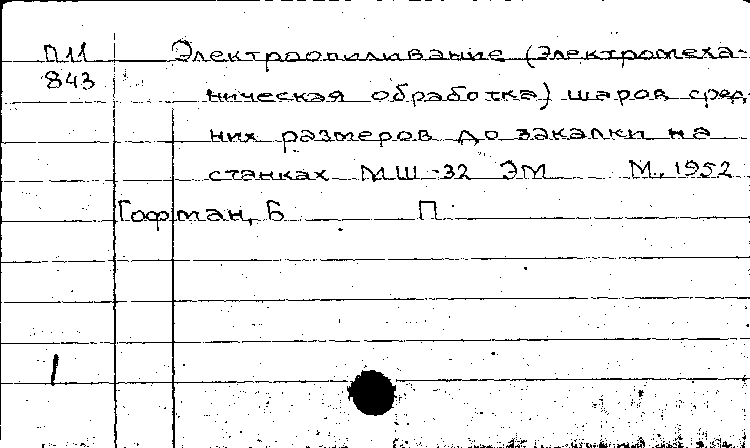 П11 Электроопиливание (электромеха-
843 ническая обработка) шаров сред
них размеров до закалки на
станках МШ-32 ЭМ М, 1952
Гофман, Б П
1